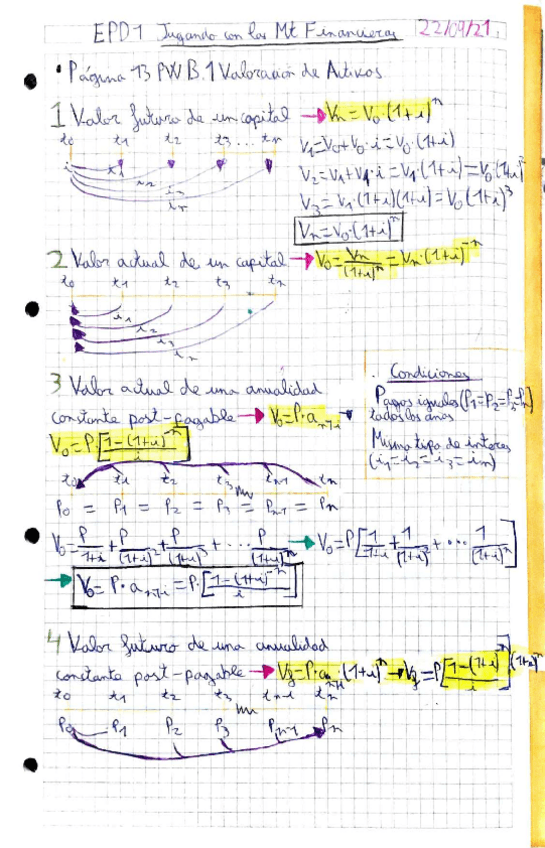 EPD1 Jugando con las Mt Financieras 22/09/21
• Página 13 PW B.1 Valoración de Activos
1 Valor futuro de un capital → Vn = V0·(1+i)^n
t0 t1 t2 t3 ... tn
V1 = V0+V0·i = V0·(1+i)
i i1
V2 = V1+V1·i = V1·(1+i) = V0·(1+i)^2
i2
V3 = V1·(1+i)(1+i) = V0(1+i)^3
i3
in
Vn = V0·(1+i)^n
2 Valor actual de un capital → V0 = Vn/(1+i)^n = Vn·(1+i)^-n
t0 t1 t2 t3 tn
i1
i2
i3
in
3 Valor actual de una anualidad
constante post-pagable → V0 = P·a n¬i
V0 = P·[1-(1+i)^-n / i]
Condiciones
Pagos iguales (P1=P2=P3=Pn)
todos los años
Mismo tipo de interes
(i1=i2=i3=in)
t0 t1 t2 t3 tn-1 tn
P0 = P1 = P2 = P3 = Pn-1 = Pn
V0 = P/1+i + P/(1+i)^2 + P/(1+i)^3 + ... P/(1+i)^n → V0 = P[1/1+i + 1/(1+i)^2 + ... 1/(1+i)^n]
→ V0 = P·a n¬i = P·[1-(1+i)^-n / i]
4 Valor futuro de una anualidad
constante post-pagable → Vf = P·a n¬i·(1+i)^n → Vf = P[1-(1+i)^-n / i](1+i)^n
t0 t1 t2 t3 tn-1 tn
P0 P1 P2 P3 Pn-1 Pn